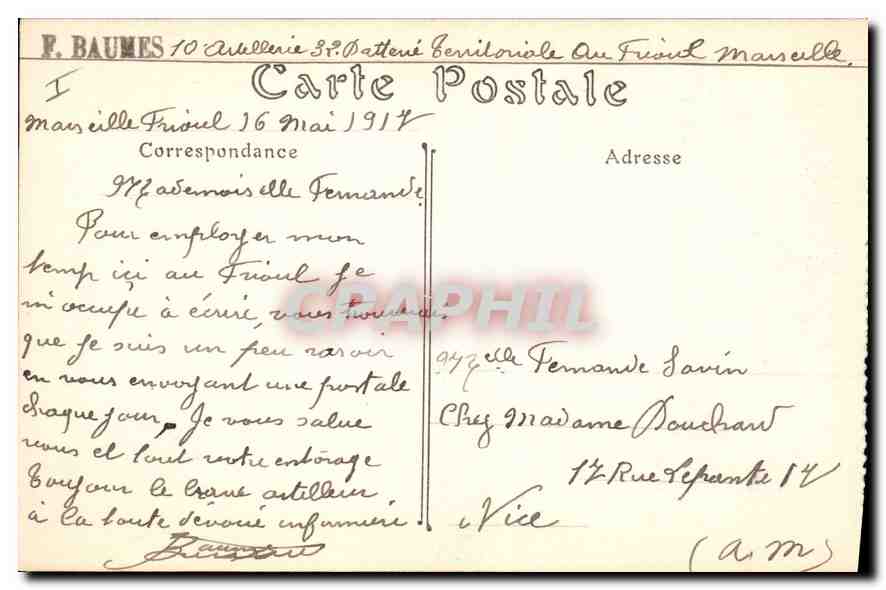 F. BAUMES 10e Artellerie 32e Batterie Territoriale Au Frioul Marseille.
Carte Postale
I
Marseille Frioul 16 Mai 1917
Correspondance
Mademoiselle Fernande
Pour employer mon
temp ici au Frioul Je
m'occupe à écrire, vous trouverai
que Je suis un peu rasoir
en vous envoyant une postale
chaque Jour, Je vous salue
vous et tout votre entourage
Toujour le brave artilleur
à la toute dévoué infirmière
Baumes
Adresse
Melle Fernande Savin
Chez Madame Bouchard
17 Rue Lepante 17
Nice
(A. M)
CPAPHIL